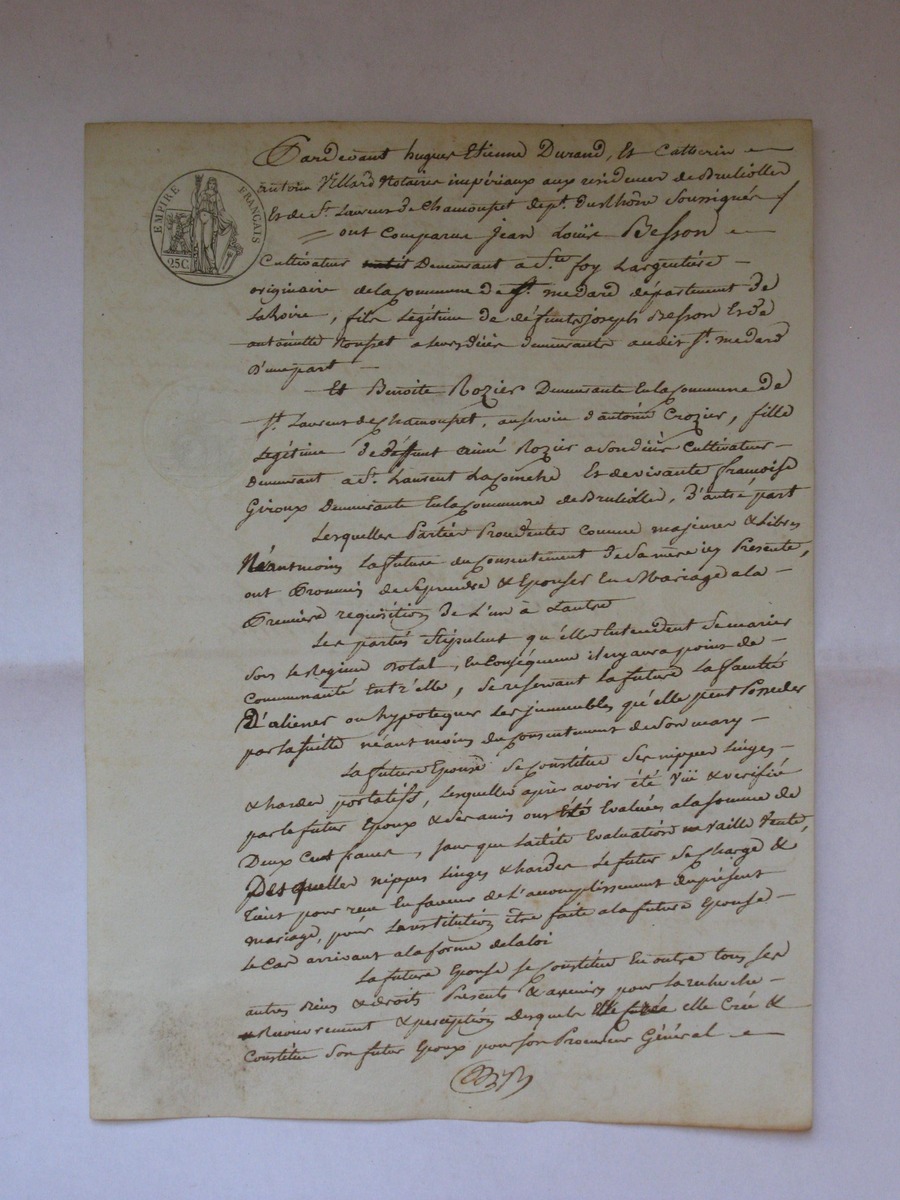 EMPIRE FRANÇAIS
25C.
Pardevant hugues Etienne Durand, Et Catherin
antoine Villard Notaires impériaux aux residences de Brullioller
Et de St. Laurent de Chamousset dept. du Rhône Soussignés
ont Comparus Jean Louis Besson
Cultivateur Demeurant a Ste. foy Largentière
originaire de la Commune de St. medard département de
la Loire, fils Légitime de défunts joseph Besson Et de
antoinette Rousset a leurs décès demeurants audit St. medard
D'une part
Et Benoite Rozier Demeurante En la Commune de
St. Laurent de Chamousset, au service d'antoine Crozier, fille
Légitime de Deffunt aimé Rozier a son décès Cultivateur
demeurant a St. Laurent Et de vivante françoise
Giroux Demeurante En la Commune de Brullioller, D'autre part
Lesquelles Parties Procedentes Comme majeures & Libres
Néantmoins La future du Consentement de Sa mère icy Présente,
ont Promis de Se prendre & Epouser En Mariage a la
Première requisition de L'un a Lautre
Les parties Stipulent qu'elles Entendent Se marier
Sous le Regime Dotal, En Conséquence il ny aura point de
Communauté Entr'elle, Se reservant La future La faculté
D'aliener ou hypotequer Les jmmeubles qu'elle peut Posseder
par La suitte néantmoins du Consentement de Son mary
La future Epouse Se Constitue Ses nippes Linges
& hardes portatifs, Lesquelles après avoir été Vüe & verifié
par le futur Epoux & Ses amis ont Eté Evaluées a la Somme de
Deux Cent francs, sans que La dite Evaluation en vaille Vente,
Desquelles nippes Linges & hardes Le futur Se Charge &
tient pour reçu En faveur de L'accomplissement du présent
mariage, pour La restitution être faite a la future Epouse
le Cas arrivant a la forme de la loi
La future Epouse Se Constitue En outre tous Ses
autres Biens & droits Presents & avenirs pour La recherche
Recouvrement & perception Desquels elle Crée &
Constitue Son futur Epoux pour Son Procureur Général